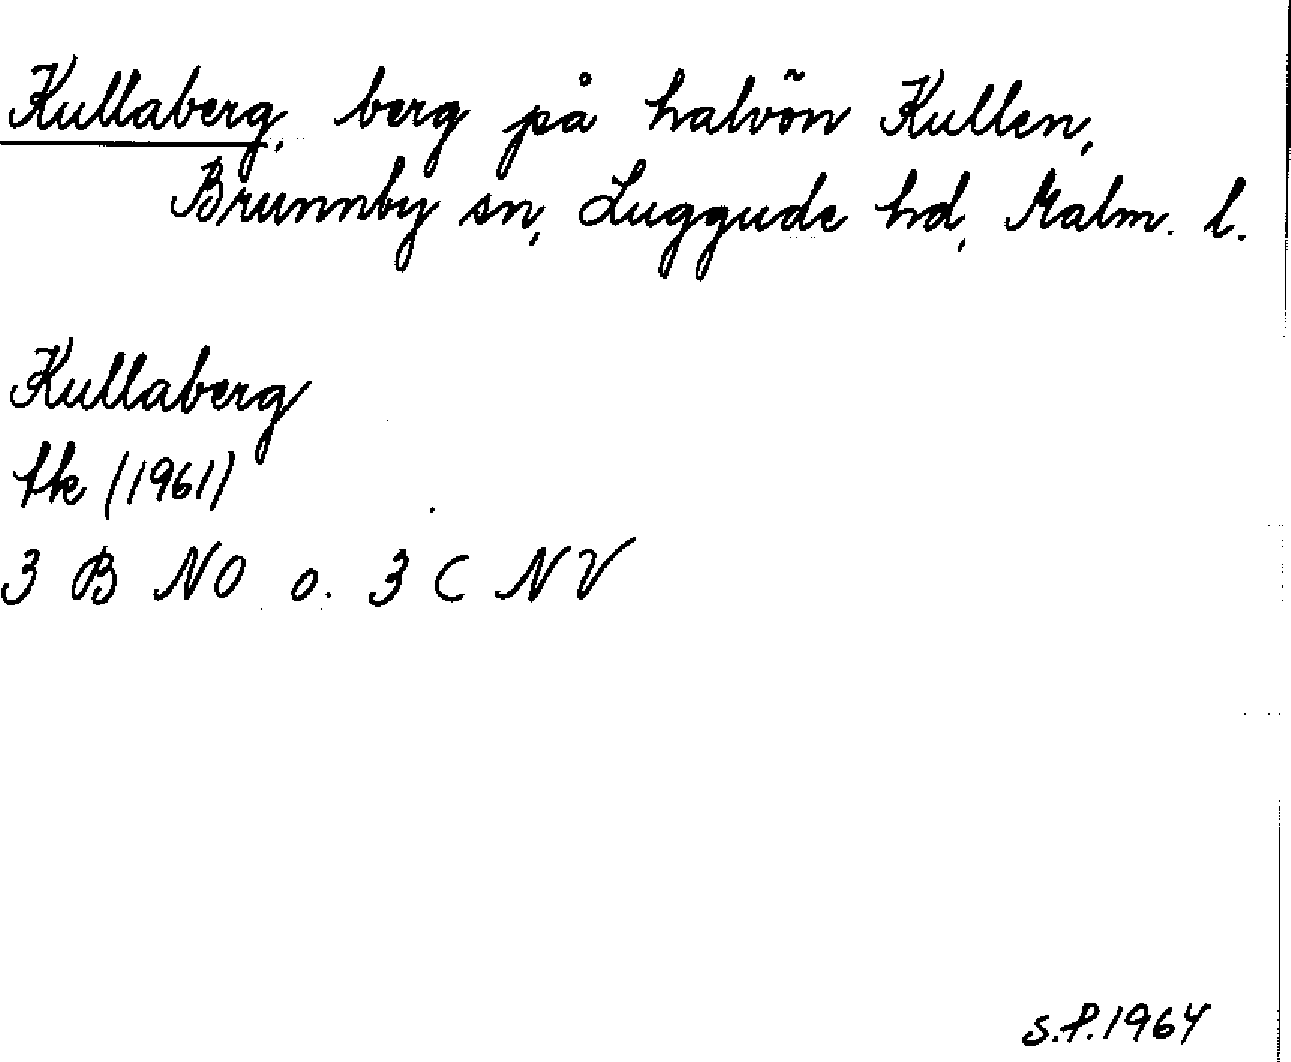 Kullaberg, berg på halvön Kullen,
Brunnby sn, Luggude hd, Malm. l.
Kullaberg
tk (1961)
3 B NO o. 3 C NV
S.P. 1964